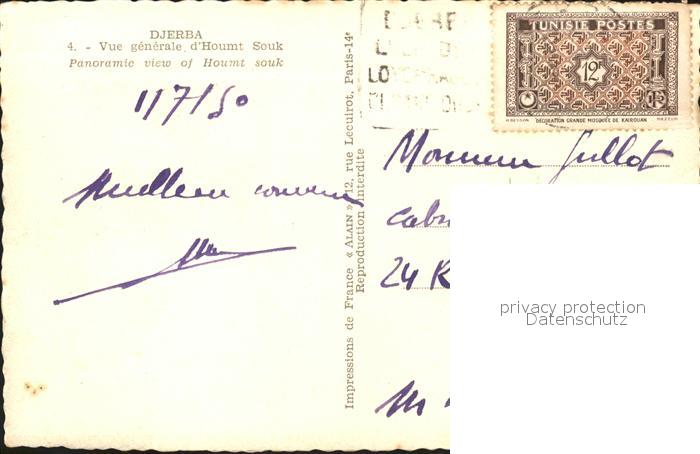 DJERBA
4. - Vue générale d'Houmt Souk
Panoramic view of Houmt souk
1/7/50
Meilleur souvenir
Impressions de France « ALAIN » 12, rue Lecuirot, Paris-14e
Reproduction Interdite
TUNISIE POSTES
12F
RF
H.BESSON DÉCORATION GRANDE MOSQUÉE DE KAIROUAN MAZELIN
Monsieur Gullot
24 R
privacy protection
Datenschutz